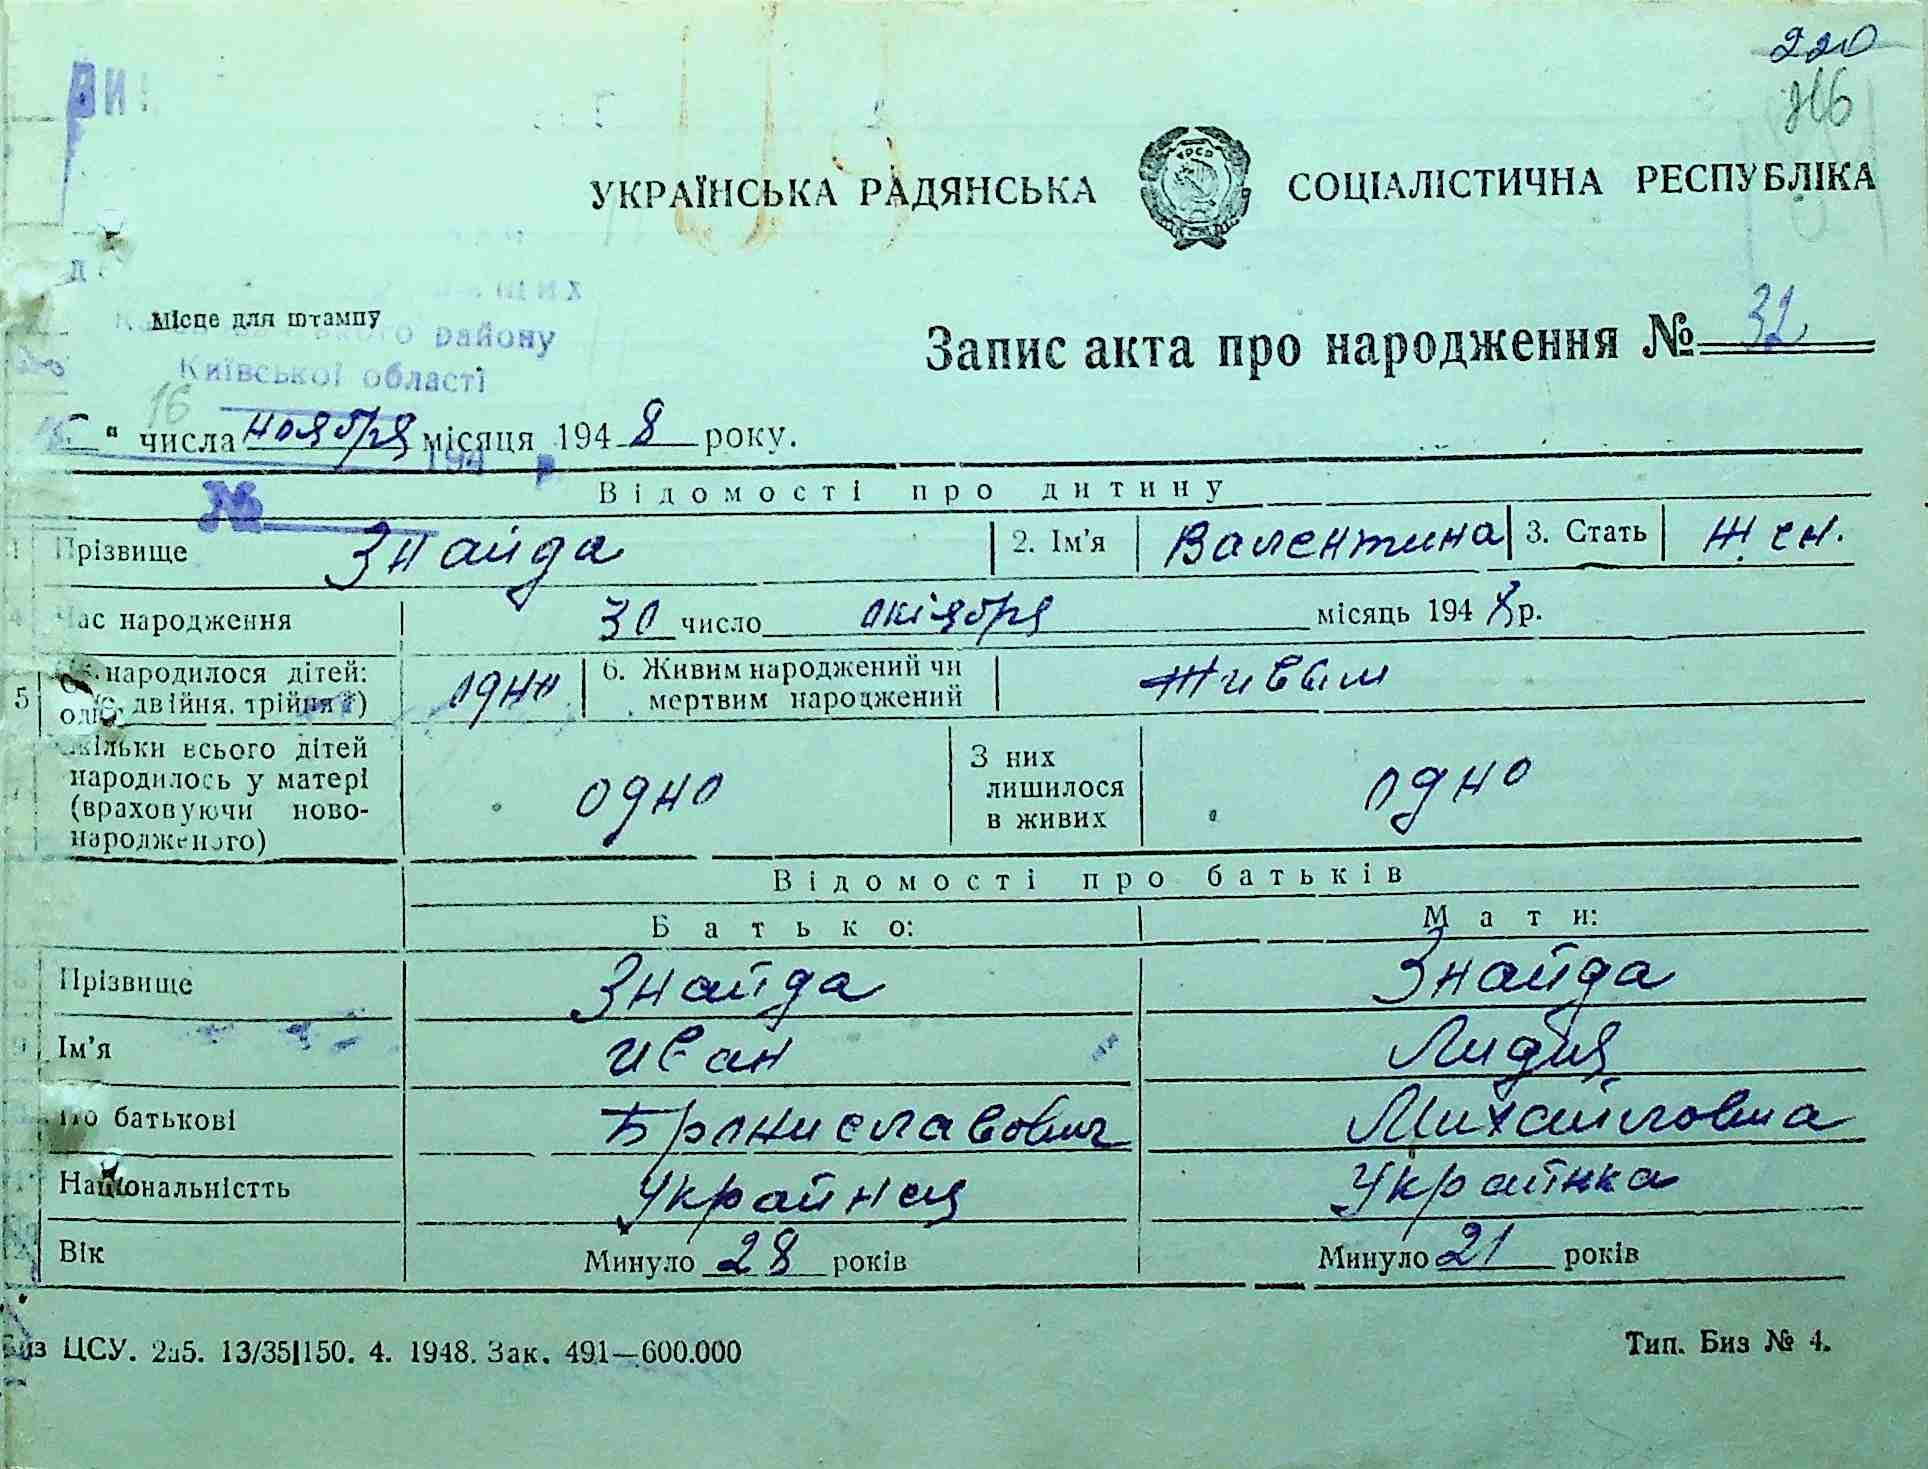 220
УКРАЇНСЬКА РАДЯНСЬКА СОЦІАЛІСТИЧНА РЕСПУБЛІКА
УРСР
Місце для штампу
району
Київської області
Запис акта про народження № 32
16
" числа ноября місяця 1948 року.
194 р
№
Відомості про дитину
Прізвище Знайда 2. Ім'я Валентина 3. Стать Жен.
Час народження 30 число октября місяць 1948 р.
5 народилося дітей: одно 6. Живим народжений чи Живым
двійня, трійня?) мертвим народжений
Скільки всього дітей З них
народилось у матері одно лишилося одно
(враховуючи ново- в живих
народженого)
Відомості про батьків
Батько: Мати:
Прізвище Знайда Знайда
Ім'я Иван Лидия
По батькові Брониславович Михайловна
Національністть Украйнец Украинка
Вік Минуло 28 років Минуло 21 років
Биз ЦСУ. 2д5. 13/35|150. 4. 1948. Зак. 491—600.000 Тип. Биз № 4.